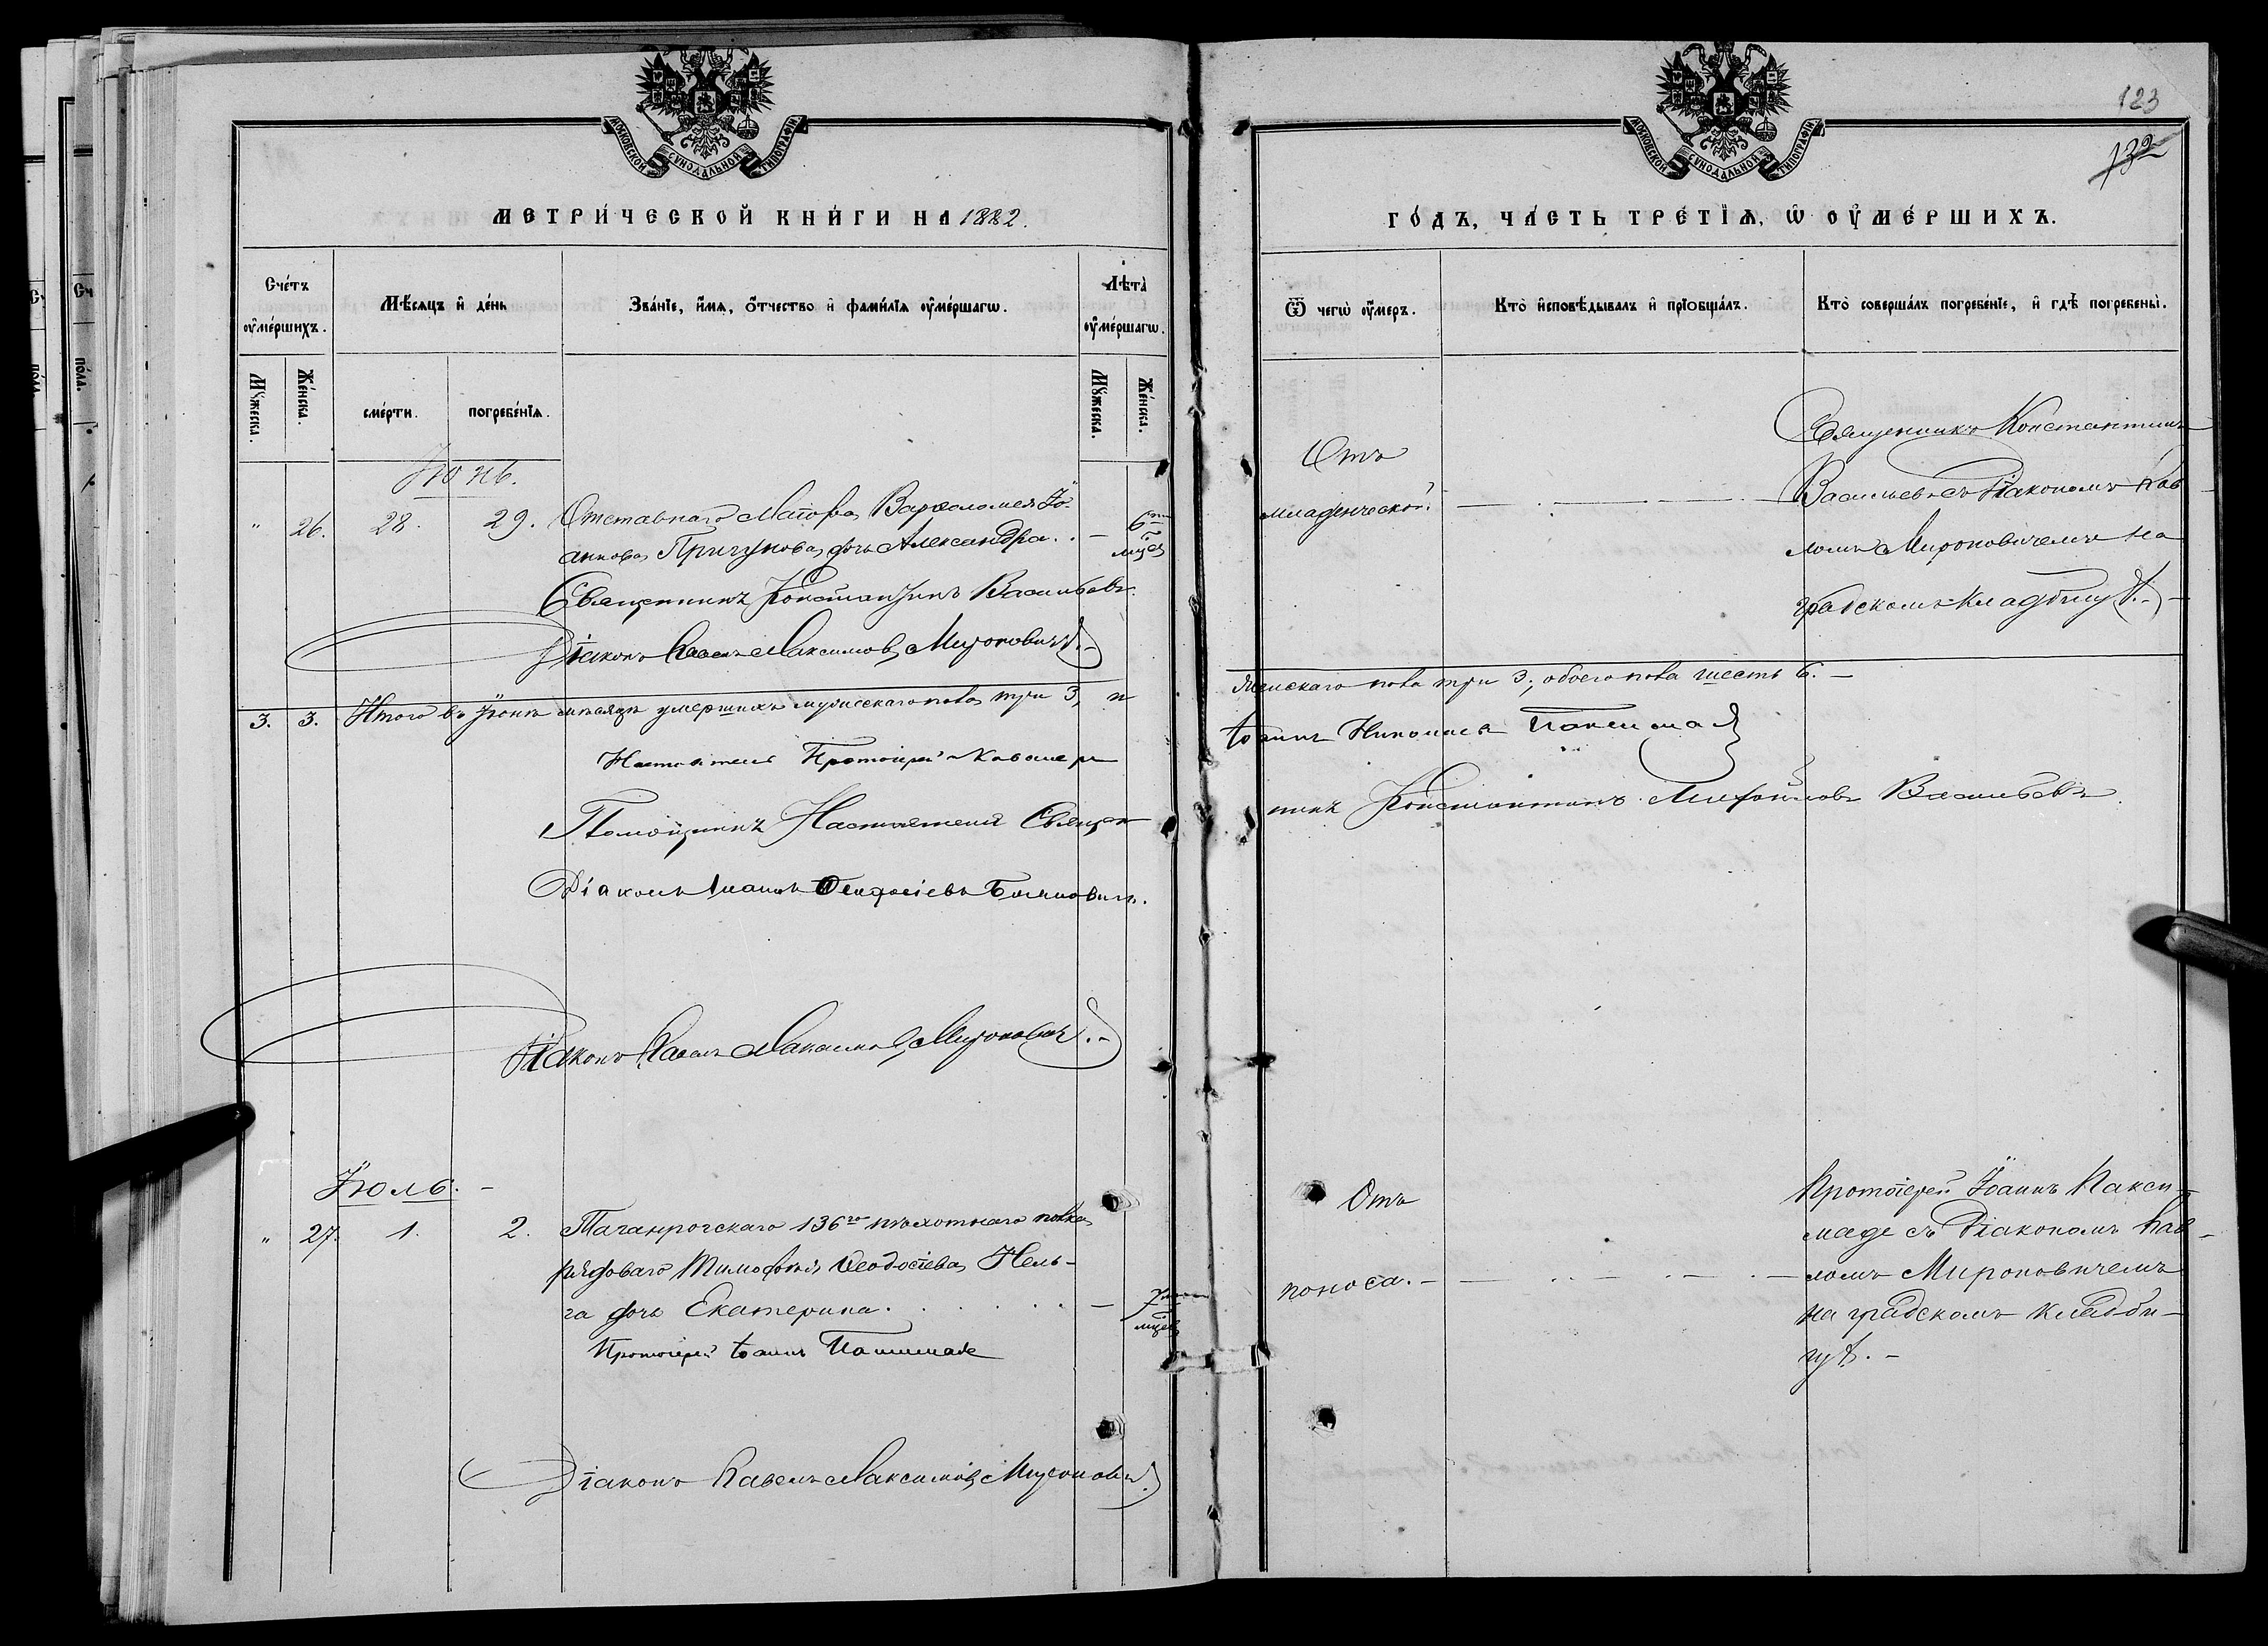 МОСКОВСКОЙ СѴНОДАЛЬНОЙ ТИПОГРАФІИ
МЕТРИ́ЧЕСКОЙ КНИ́ГИ НА 1882.
Сче́тъ оу҆ме́ршихъ.
Мѣ́сяцъ и҆ де́нь
Зва́нїе, и҆́мя, ѻ҆́тчество и҆ фами́лїя оу҆ме́ршагѡ.
Лѣта̀ оу҆ме́ршагѡ.
Мꙋ́жеска.
Же́нска.
сме́рти.
погребе́нїѧ.
Мꙋ́жеска.
Же́нска.
Іюнь.
" 26. 28. 29. Отставнаго Маіора Варѳоломея Іо-
аннова Пригунова дочь Александра. . – 6ти мцев
Священникъ Константинъ Васильевъ.
Діаконъ Павелъ Максимовъ Мироновичъ.
3. 3. Итого въ Іюнѣ мѣсяцѣ умершихъ мужескаго пола три 3, и
Настоятель Протоіерей Кавалеръ
Помощникъ Настоятеля Священ
Діаконъ Іоаннъ Ѳеодосіевъ
Діаконъ Павелъ Максимовъ Мироновичъ.
Іюль. –
" 27. 1. 2. Таганрогскаго 136го пѣхотнаго полка
рядоваго Тимофѣя Ѳеодосіева Нель-
га дочь Екатерина. . . . . . – 7 мцев
Протоіерей Іоаннъ Паксимаде
Діаконъ Павелъ Максимовъ Мироновичъ.
МОСКОВСКОЙ СѴНОДАЛЬНОЙ ТИПОГРАФІИ
123
132
ГО́ДЪ, ЧА́СТЬ ТРЕ́ТЇѦ, Ѡ҆ ОУ҆МЕ́РШИХЪ.
Ѿ чегѡ̀ оу҆́меръ.
Кто̀ и҆сповѣ́дывалъ и҆ прїѡбща́лъ.
Кто̀ соверша́лъ погребе́нїе, и҆ гдѣ̀ погребены̀.
Отъ
младенческой
Священникъ Константинъ
Васильевъ съ Діакономъ Пав-
ломъ Мироновичемъ на
градскомъ кладбищѣ. –
женскаго пола три 3, обоего пола шесть 6. –
Іоаннъ Николаевъ Паксимаде
никъ Константинъ Михайловъ Васильевъ.
Отъ
поноса. –
Протоіерей Іоаннъ Пакси-
маде съ Діакономъ Пав-
ломъ Мироновичемъ
на градскомъ кладби-
щѣ. –